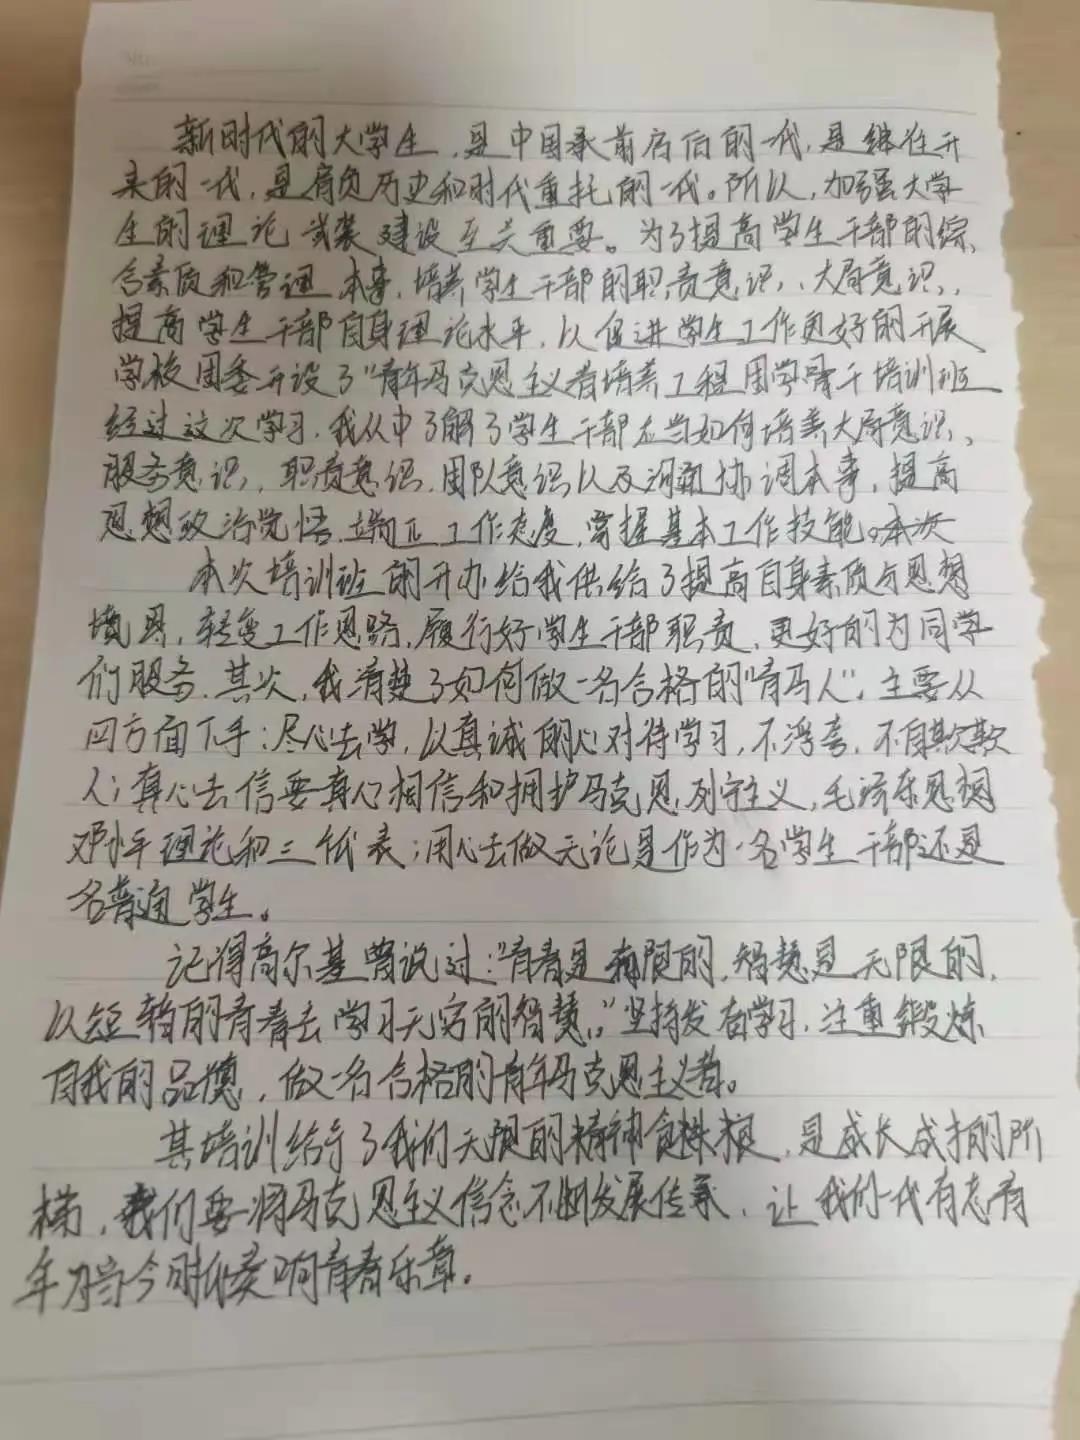 新时代的大学生，是中国承前启后的一代，是继往开
来的一代，是肩负历史和时代重托的一代。所以，加强大学
生的理论武装建设至关重要。为了提高学生干部的综
合素质和管理本事，培养学生干部的职责意识、大局意识，
提高学生干部自身理论水平，以促进学生工作更好的开展
学校团委开设了“青年马克思主义者培养工程团学骨干培训班
经过这次学习，我从中了解了学生干部应当如何培养大局意识、
服务意识，职责意识，团队意识以及沟通协调本事，提高
思想政治觉悟，端正工作态度，掌握基本工作技能。本次
本次培训班的开办给我供给了提高自身素质与思想
境界，转变工作思路，履行好学生干部职责，更好的为同学
们服务。其次，我清楚了如何做一名合格的“青马人”，主要从
四方面下手：尽心去学，以真诚的心对待学习，不浮夸，不自欺欺
人；真心去信要真心相信和拥护马克思列宁主义，毛泽东思想
邓小平理论和三个代表；用心去做无论是作为一名学生干部还是
名普通学生。
记得高尔基曾说过：“青春是有限的，智慧是无限的，
以短暂的青春去学习无穷的智慧。”坚持发奋学习，注重锻炼
自我的品德，做一名合格的青年马克思主义者。
其培训给予了我们无限的精神食粮，是成长成才的阶
梯，我们要将马克思主义信念不断发展传承，让我们一代有志青
年为当今时代奏响青春乐章。